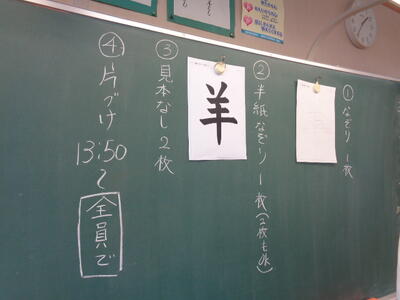 ① なぞり 1枚
② 半紙なぞり 1枚(2枚もOK)
羊
③ 見本なし 2枚
④ 片づけ
13:50〜
全員で